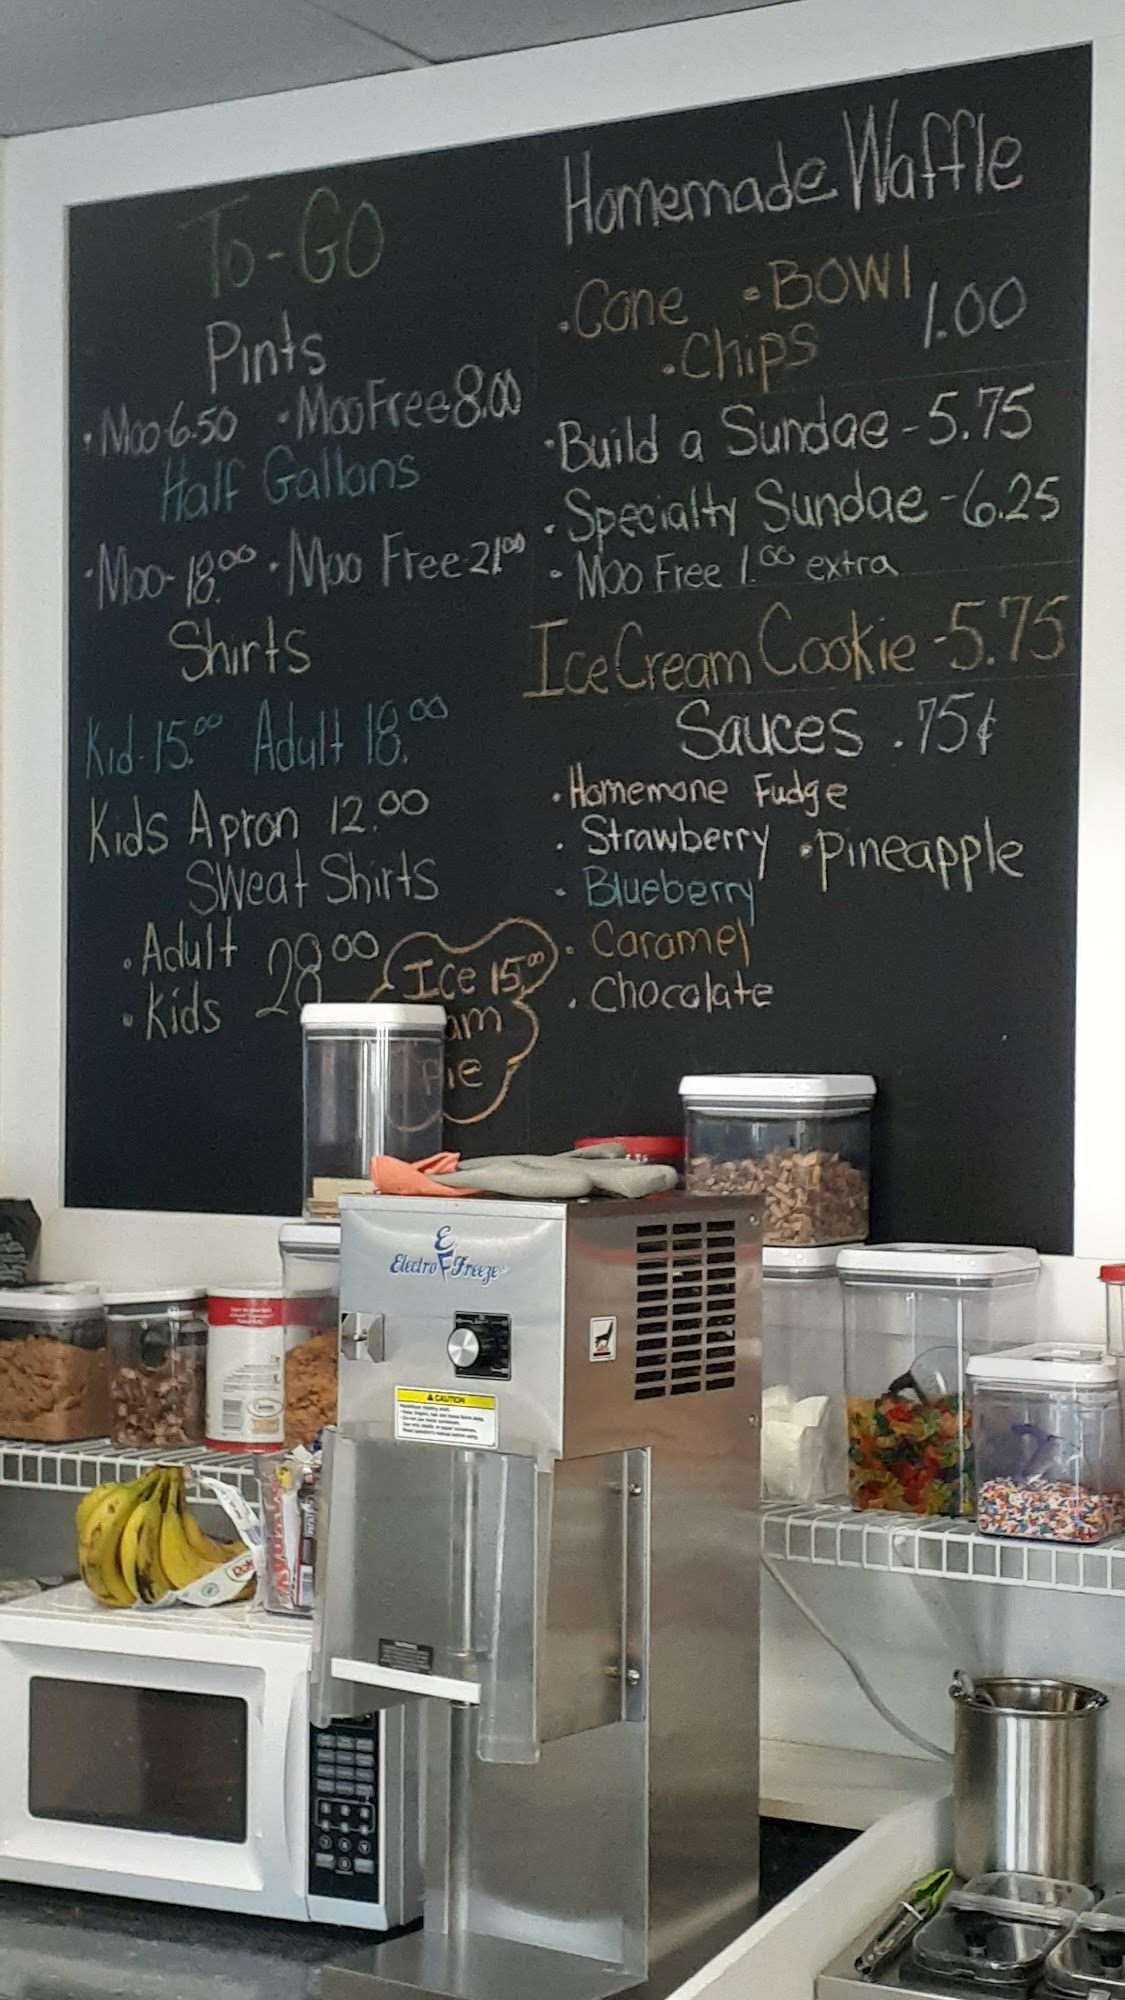 To-Go
Pints
• Moo 6.50 • Moo Free 8.00
Half Gallons
• Moo- 18.00 • Moo Free-21.00
Shirts
Kid-15.00 Adult 18.00
Kids Apron 12.00
Sweat Shirts
• Adult 28.00
• Kids
Ice 15.00
am
Pie
Homemade Waffle
• Cone • BOWl
• Chips 1.00
• Build a Sundae - 5.75
• Specialty Sundae - 6.25
• Moo Free 1.00 extra
Ice Cream Cookie - 5.75
Sauces .75¢
• Homemone Fudge
• Strawberry • Pineapple
• Blueberry
• Caramel
• Chocolate
Electro Freeze
CAUTION
Dole